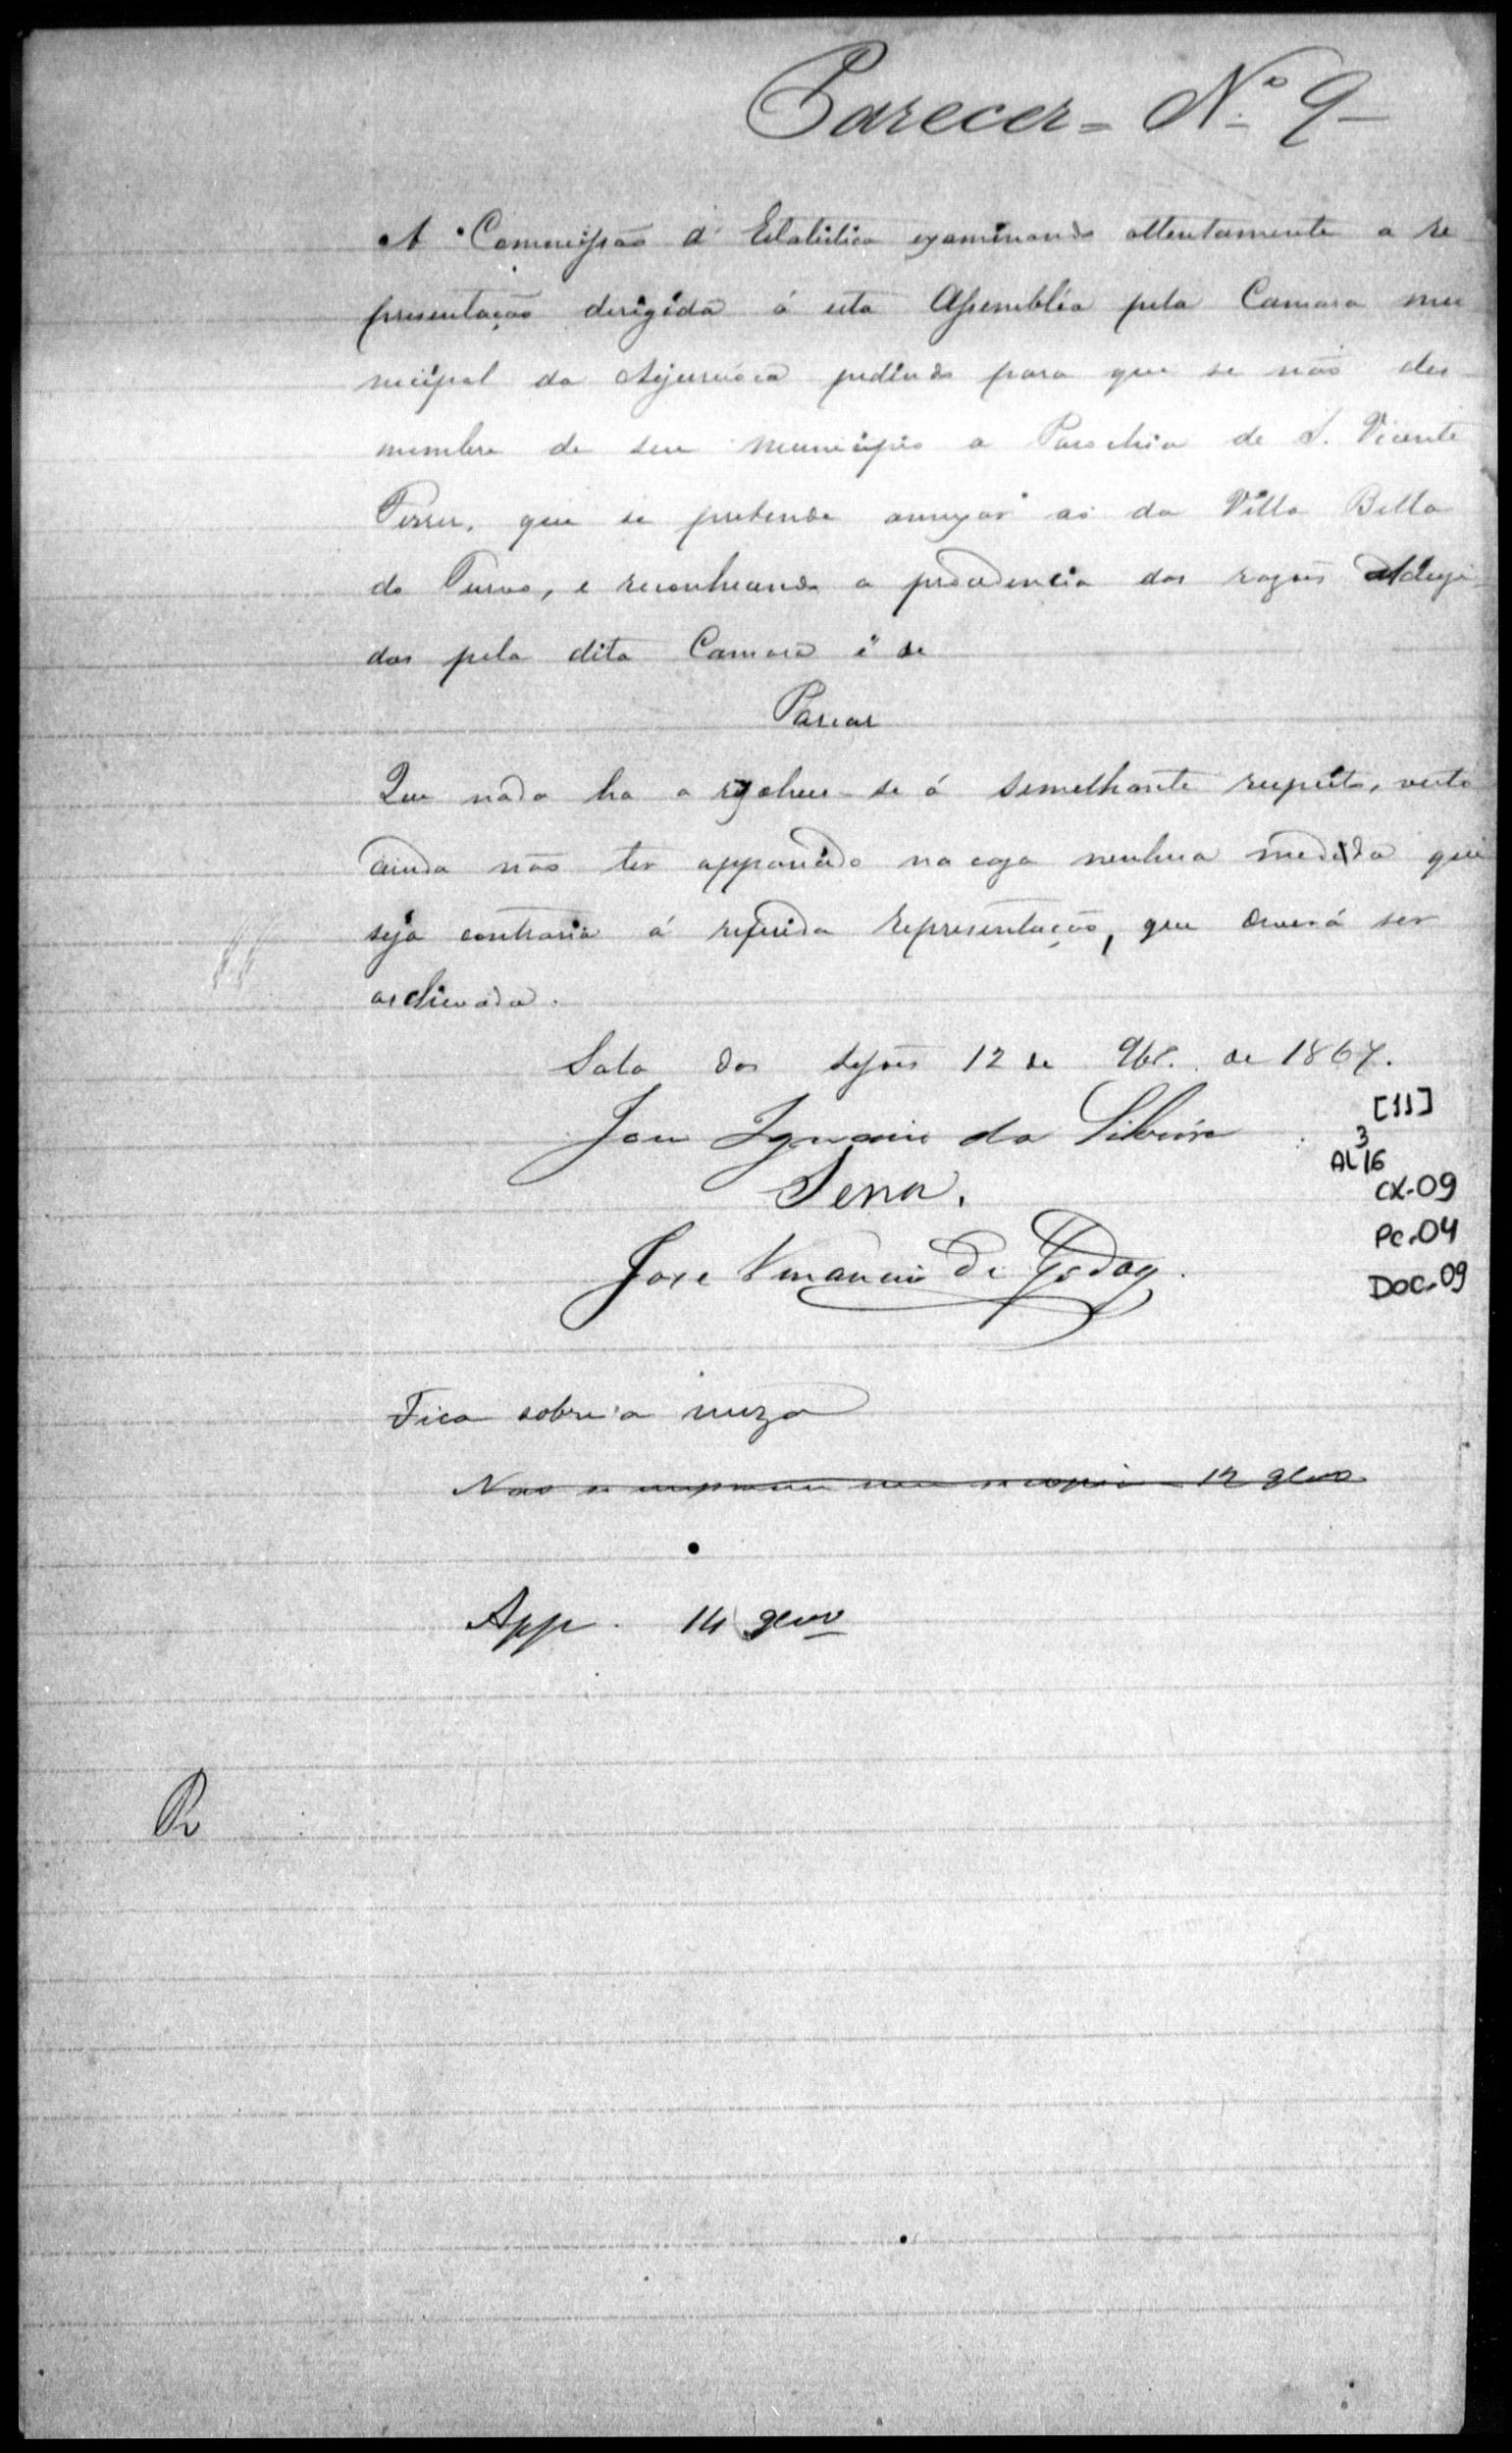 Parecer = Nº 9 –
A Commissão d' Estatistica examinando attentamente a re
presentação dirigida á esta Assembléa pela Camara mu
nicipal da Ajuruóca pedindo para que se não des
membre de seu municipio a Parochia de S. Vicente
Ferrer, que se pretende annexar ao da Villa Bella
do Turvo, e reconhecendo a procedencia das rasões
das pela dita Camara é de
Parecer
Que nada ha a resolver-se á semelhante respeito, visto
ainda não ter apparecido na caza nenhuma medida que
seja contraria á referida representação, que deverá ser
archivada.
Sala das sessões 12 de 9br. de 1867.
José Ignacio da Silveira
Sena.
José Venancio de Godoy.
[11]
3
AL 16
CX-09
Pc-04
DOC-09
Fica sobre a meza
Não se 12 9bro
App. 14 9bro
R